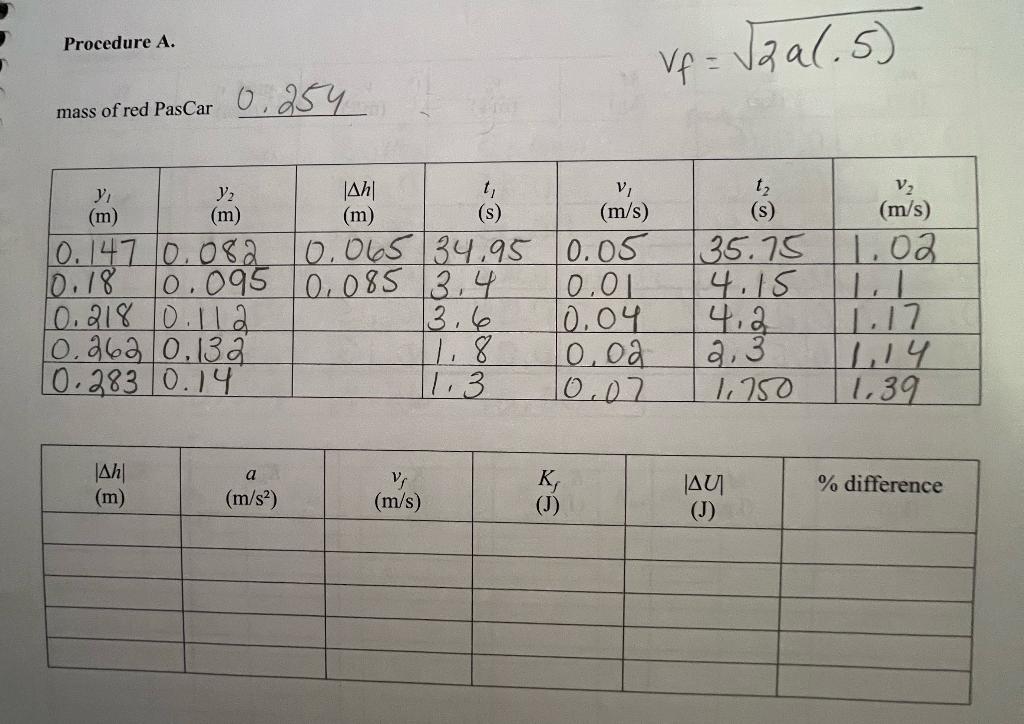 Procedure A.
vf = √2a(.5)
mass of red PasCar 0.254
y₁ (m) y₂ (m) |Δh| (m) t₁ (s) v₁ (m/s) t₂ (s) v₂ (m/s)
0.147 0.082 0.065 34.95 0.05 35.75 1.02
0.18 0.095 0.085 3.4 0.01 4.15 1.1
0.218 0.112 3.6 0.04 4.2 1.17
0.262 0.132 1.8 0.02 2.3 1.14
0.283 0.14 1.3 0.07 1.750 1.39
|Δh| (m) a (m/s²) vf (m/s) Kf (J) |ΔU| (J) % difference